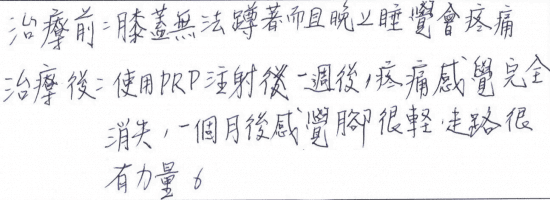 治療前:膝蓋無法蹲著而且晚上睡覺會疼痛
治療後:使用PRP注射後一週後,疼痛感覺完全
消失,一個月後感覺腳很輕.走路很
有力量。